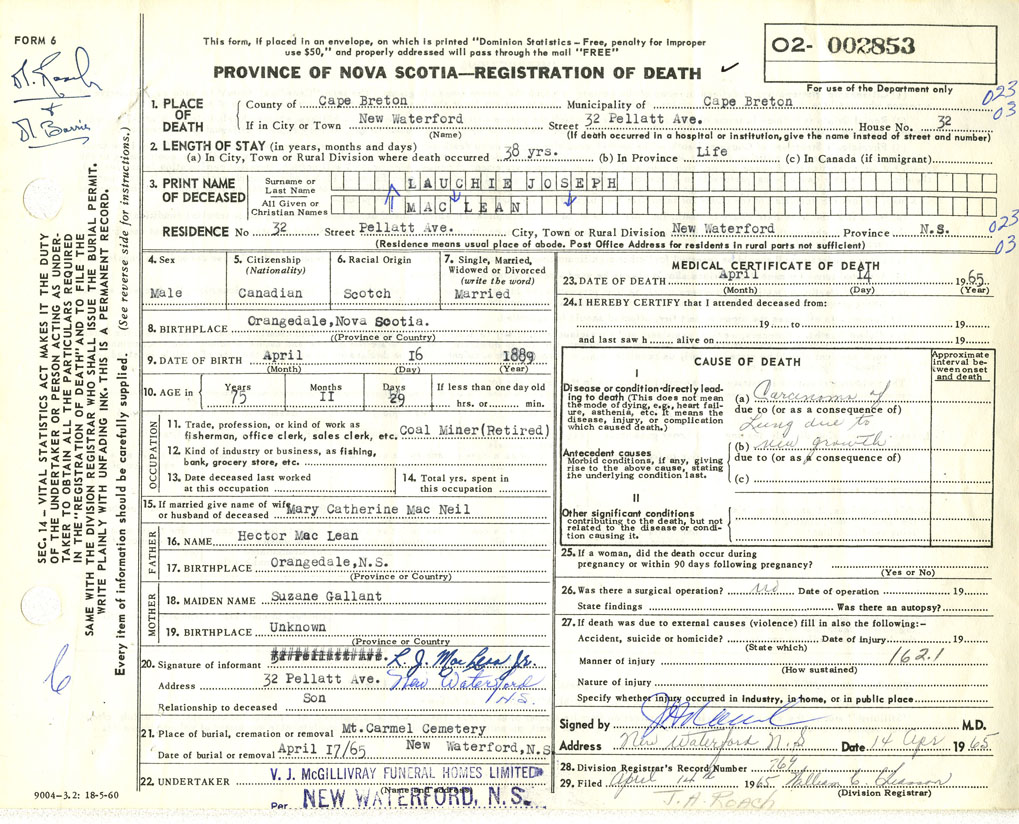 FORM 6
This form, if placed in an envelope, on which is printed "Dominion Statistics – Free, penalty for improper
use $50," and properly addressed will pass through the mail "FREE"
PROVINCE OF NOVA SCOTIA—REGISTRATION OF DEATH ✓
02- 002853
For use of the Department only
023
03
1. PLACE OF DEATH
County of Cape Breton Municipality of Cape Breton
If in City or Town New Waterford Street 32 Pellatt Ave. House No. 32
(Name) (If death occurred in a hospital or institution, give the name instead of street and number)
2. LENGTH OF STAY (in years, months and days)
(a) In City, Town or Rural Division where death occurred 38 yrs. (b) In Province Life (c) In Canada (if immigrant)
3. PRINT NAME OF DECEASED
Surname or Last Name LAUCHIE JOSEPH
All Given or Christian Names MAC LEAN
RESIDENCE No 32 Street Pellatt Ave. City, Town or Rural Division New Waterford Province N.S.
(Residence means usual place of abode. Post Office Address for residents in rural parts not sufficient)
023
03
4. Sex Male
5. Citizenship (Nationality) Canadian
6. Racial Origin Scotch
7. Single, Married, Widowed or Divorced (write the word) Married
8. BIRTHPLACE Orangedale,Nova Scotia.
((Province or Country)
9. DATE OF BIRTH April 16 1889
(Month) (Day) (Year)
10. AGE in Years 75 Months 11 Days 29 If less than one day old hrs. or min.
OCCUPATION
11. Trade, profession, or kind of work as
fisherman, office clerk, sales clerk, etc. Coal Miner(Retired)
12. Kind of industry or business, as fishing,
bank, grocery store, etc.
13. Date deceased last worked at this occupation
14. Total yrs. spent in this occupation
15. If married give name of wife
or husband of deceased Mary Catherine Mac Neil
FATHER
16. NAME Hector Mac Lean
17. BIRTHPLACE Orangedale,N.S.
(Province or Country)
MOTHER
18. MAIDEN NAME Suzane Gallant
19. BIRTHPLACE Unknown
(Province or Country
20. Signature of informant 32 Pellatt Ave. L. J. MacLean Jr.
Address 32 Pellatt Ave. New Waterford N.S.
Relationship to deceased Son
21. Place of burial, cremation or removal Mt.Carmel Cemetery
Date of burial or removal April 17/65 New Waterford,N.S
22. UNDERTAKER V. J. McGILLIVRAY FUNERAL HOMES LIMITED
(Name and address)
Per NEW WATERFORD, N.S.
9004–3.2: 18-5-60
MEDICAL CERTIFICATE OF DEATH
23. DATE OF DEATH April 14 1965
(Month) (Day) (Year)
24. I HEREBY CERTIFY that I attended deceased from:
19 to 19
and last saw h alive on 19
CAUSE OF DEATH
Approximate interval between onset and death
I
Disease or condition directly leading to death (This does not mean the mode of dying, e.g., heart failure, asthenia, etc. It means the disease, injury, or complication which caused death.)
(a) Carcinoma of
due to (or as a consequence of)
Lung due to
Antecedent causes
Morbid conditions, if any, giving rise to the above cause, stating the underlying condition last.
(b) new growth
due to (or as a consequence of)
(c)
II
Other significant conditions
contributing to the death, but not related to the disease or condition causing it.
25. If a woman, did the death occur during
pregnancy or within 90 days following pregnancy?
(Yes or No)
26. Was there a surgical operation? no Date of operation 19
State findings Was there an autopsy?
27. If death was due to external causes (violence) fill in also the following:–
Accident, suicide or homicide? Date of injury 19
(State which)
Manner of injury 162.1
(How sustained)
Nature of injury
Specify whether injury occurred in Industry, in home, or in public place
Signed by M.D.
Address New Waterford N.S Date 14 Apr 1965
28. Division Registrar's Record Number 764
29. Filed April 1965
(Division Registrar)
J. H. ROACH
SEC. 14 – VITAL STATISTICS ACT MAKES IT THE DUTY
OF THE UNDERTAKER OR PERSON ACTING AS UNDER-
TAKER TO OBTAIN ALL THE PARTICULARS REQUIRED
IN THE "REGISTRATION OF DEATH" AND TO FILE THE
SAME WITH THE DIVISION REGISTRAR WHO SHALL ISSUE THE BURIAL PERMIT.
WRITE PLAINLY WITH UNFADING INK. THIS IS A PERMANENT RECORD.
Every item of information should be carefully supplied. (See reverse side for instructions.)
6